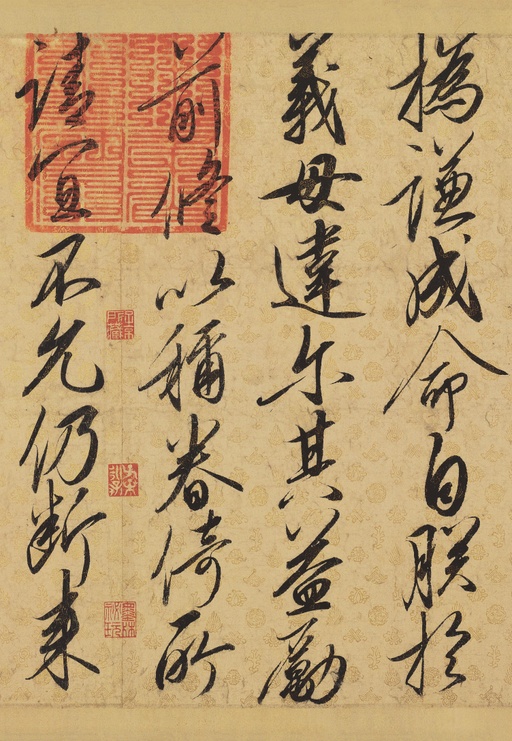 撝謙成命自朕於
義毋違尔其益勵
前修以稱眷倚所
請宜不允仍断来